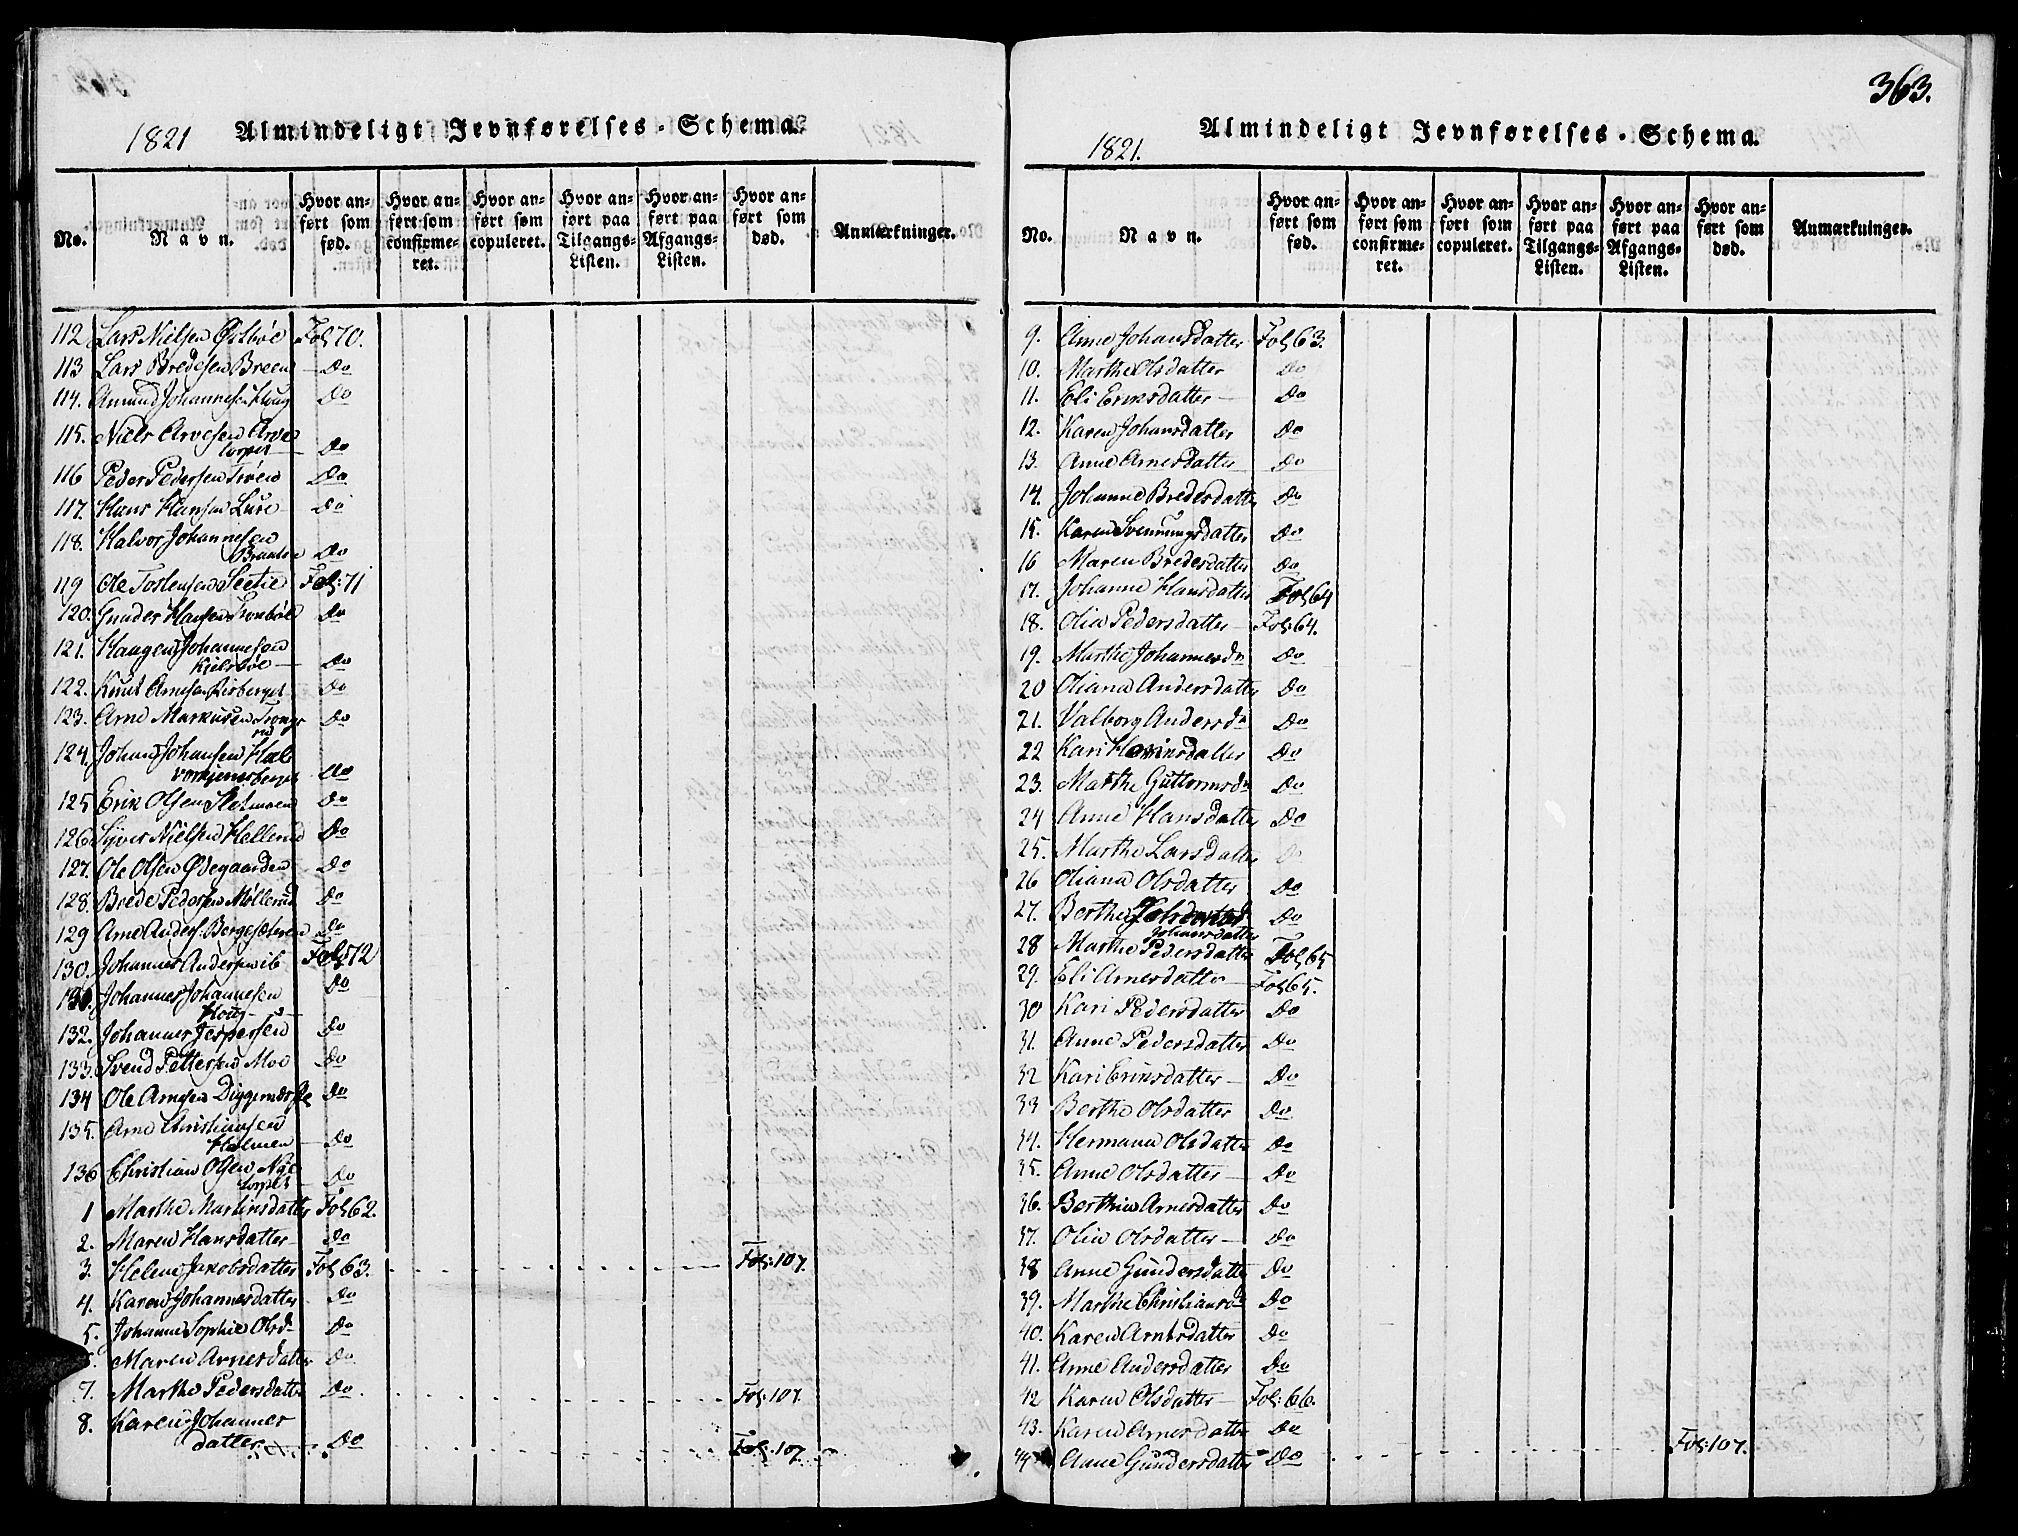 1821 Almindeligt Jevnførelses-Schema.
No.
Navn.
Hvor an-
ført som
fød.
Hvor an-
ført som
confirme-
ret.
Hvor an-
ført som
copuleret.
Hvor an-
ført paa
Tilgangs-
Listen.
Hvor an-
ført paa
Afgangs-
Listen.
Hvor an-
ført som
død.
Anmærkninger.
112 Lars Nielsen Østbøe Fol 70.
113 Lars Bredesen Breen Do
114. Amund Johannesen Houg Do
115. Niels Arvesen Arve
torpet Do
116 Peder Pedersen Trøen Do
117. Hans Hansen Lure Do
118. Halvor Johannesen
Do
119 Ole Torstensen Fol:71
120. Gunder Hansen Do
121. Haagen Johannesen
Kielsbøe Do
122. Knut Arnesen Do
123. Arne Markusen Do
124. Johan Johansen
Do
125 Erik Olsen Do
126 Syver Nielsen Hellerud Do
127. Ole Olsen Ødegaarden Do
128. Brede Pedersen Møllerud Do
129 Arne Anders: Do
130. Johannes Andersen Fol:72
131. Johannes Johannesen
Houg Do
132. Johannes Jespersen Do
133. Svend Pettersen Moe Do
134 Ole Arnesen Do
135. Arne Christiansen
Holmen Do
136 Christian Olsen Nye
torpet Do
1 Marthe Martinsdatter Fol 62.
2. Maren Hansdatter Do
3. Helene Jakobsdatter Fol 63. Fol:107.
4. Karen Johannesdatter Do
5. Johanne Sophie Olsd Do
6. Maren Arnesdatter Do
7. Marthe Pedersdatter Do. Fol:107.
8. Karen Johannes
datter Do Fol:107.
363.
1821. Almindeligt Jevnførelses-Schema.
No.
Navn.
Hvor an-
ført som
fød.
Hvor an-
ført som
confirme-
ret.
Hvor an-
ført som
copuleret.
Hvor an-
ført paa
Tilgangs-
Listen.
Hvor an-
ført paa
Afgangs-
Listen.
Hvor an-
ført som
død.
Anmærkninger.
9. Anne Johansdatter Fol 63.
10. Marthe Olsdatter Do
11. Eli Eriksdatter Do
12. Karen Johansdatter Do
13. Anne Arnesdatter Do
14. Johanne Bredesdatter Do
15. Karen Svenningsdatter Do
16 Maren Bredesdatter Do
17. Johanne Hansdatter Fol 64
18. Olia Pedersdatter Fol:64.
19. Marthe Johannesd Do
20 Oliana Andersdatter Do
21. Valborg Andersd Do
22 Kari Do
23. Marthe Guttormsd Do
24 Anne Hansdatter Do
25. Marthe Larsdatter Do
26 Oliana Olsdatter Do
27. Berthe
Johansdatter Do
28 Marthe Pedersdatter Fol 65
29. Eli Arnesdatter Fol 65.
30 Kari Pedersdatter Do
31. Anne Pedersdatter Do
32 Kari Eriksdatter Do
33 Berthe Olsdatter Do
34. Hermana Olsdatter Do
35. Anne Olsdatter Do
36. Berthea Arnesdatter Do
37. Olia Olsdatter Do
38 Anne Gundersdatter Do
39. Marthe Christiansd Do
40. Karen Arnesdatter Do
41. Anne Andersdatter Do
42 Karen Olsdatter Fol:66.
43. Karen Arnesdatter Do
44 Anne Gundersdatter Do Fol:107.